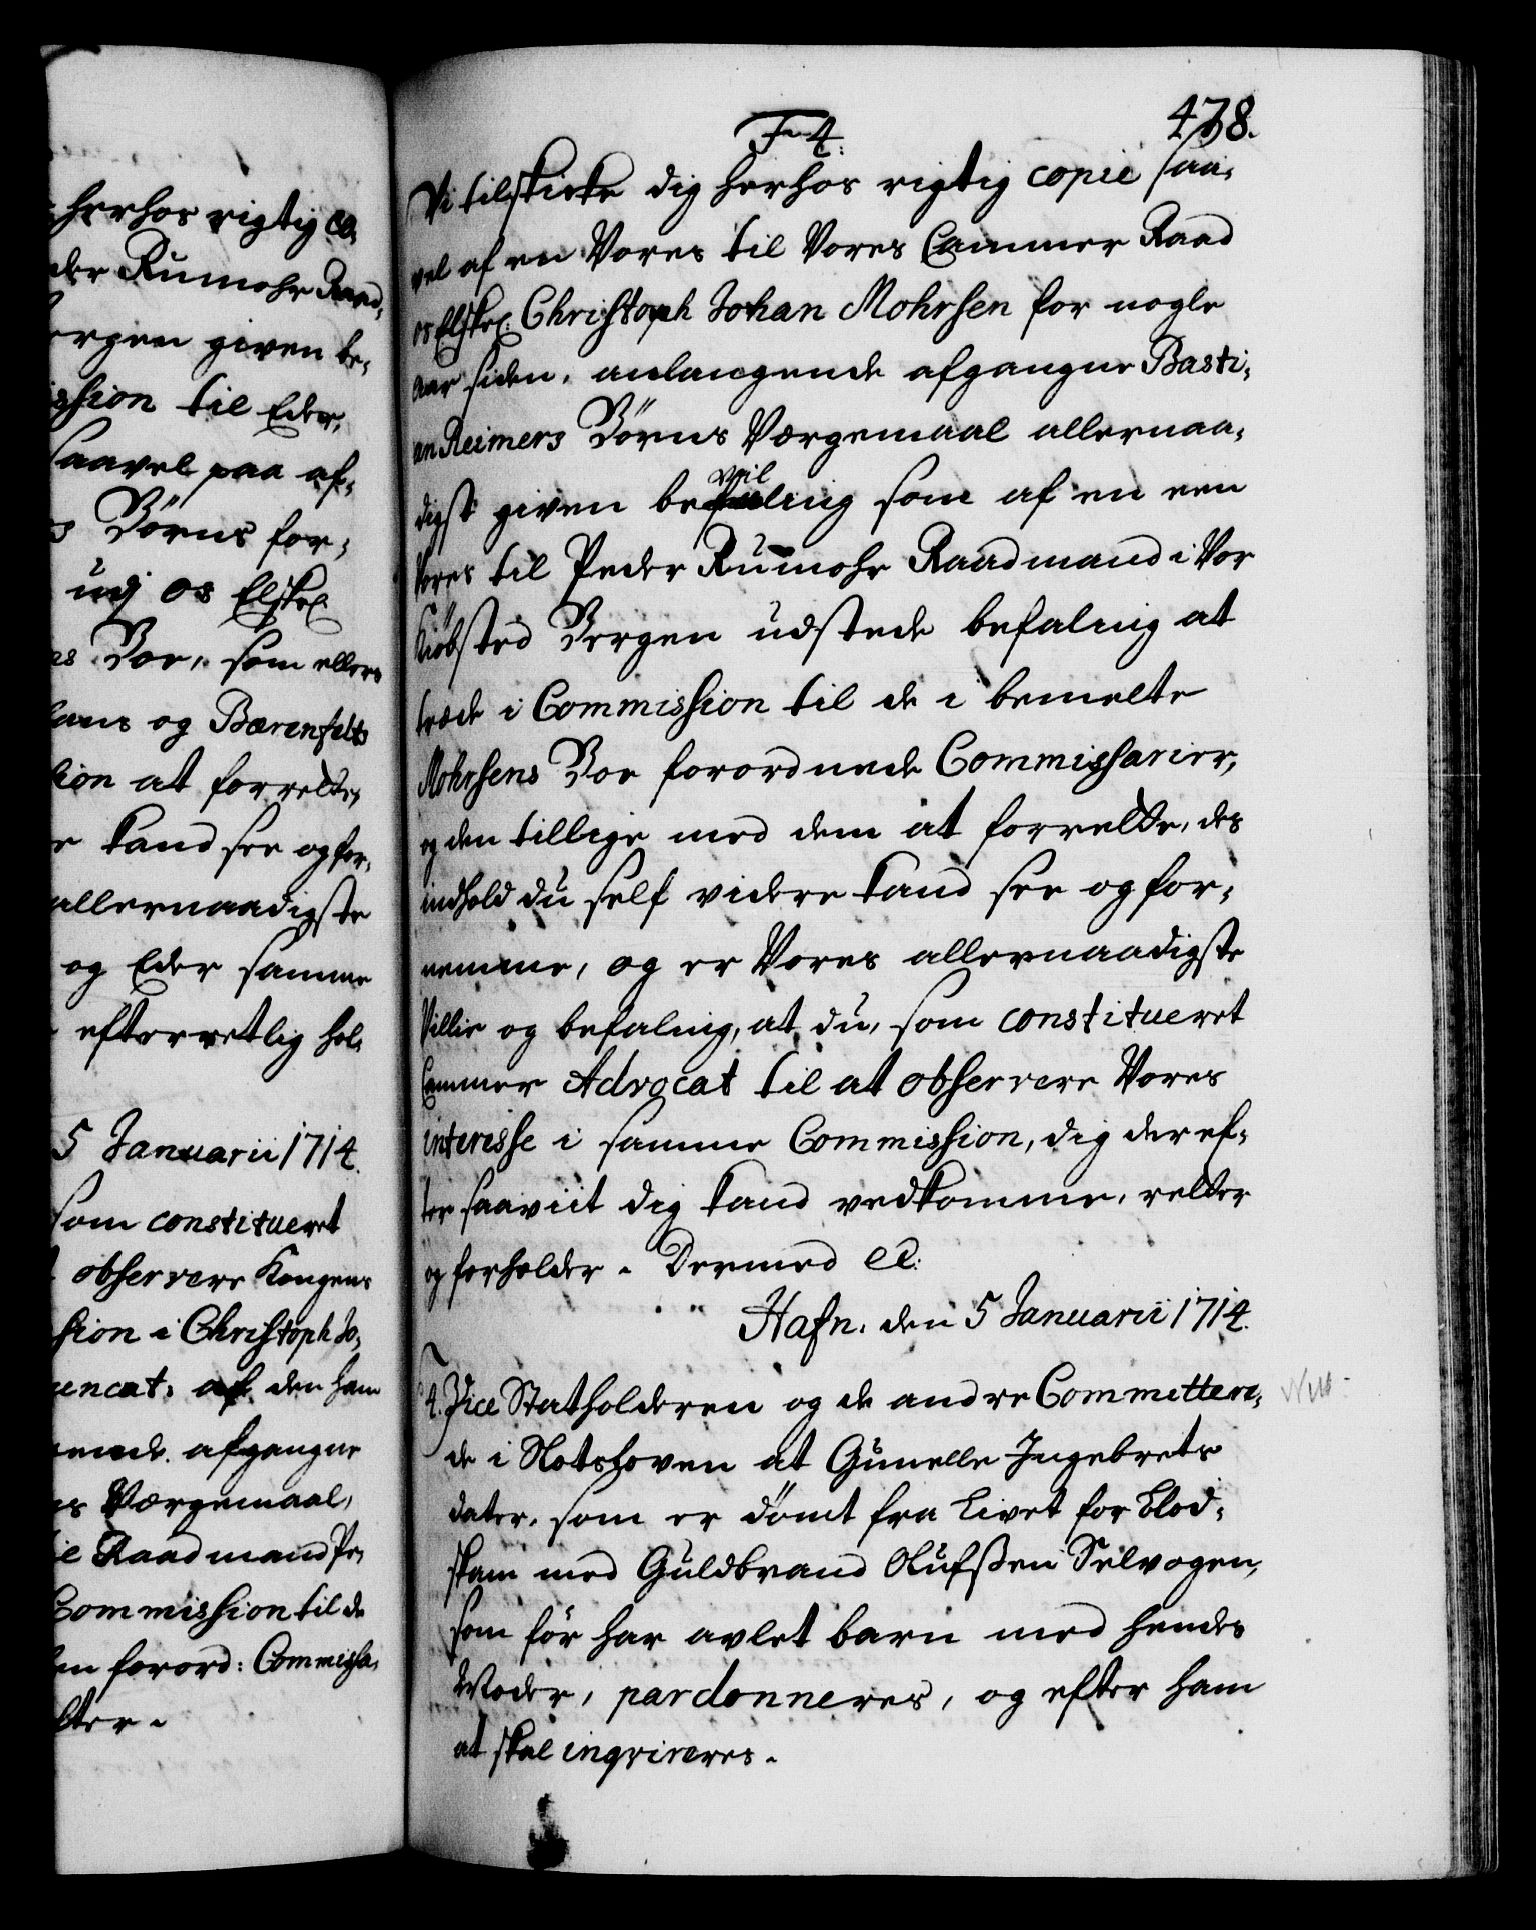 herhos rigtig co-
der Rumohr Raad-
ergen given be-
ission til Eder,
saavel paa af-
s Börns for-
udj os Elskel.
es Boe, som ellers
lans og Bærenfelts
sion at forrette,
e kand see og for-
allernaadigste
og Eder samme
efterretlig hol-
5 Januarii 1714.
som constitueret
observere Kongens
sion i Christoph Jo-
af den ham
ende afgangne
s Værgemaal,
Raadmand Pe-
Commission til de
en forord: Commissa-
tter.
F 4.
478.
Vi tilskikke dig herhos rigtig copie saa-
vel af en Vores til Vores Cammer Raad
os Elskel: Christoph Johan Mohrsen for nogle
Aar siden, anlangende afgangne Basti-
an Reimers Börns Værgemaal allernaa-
digst given bevilling som af en een
Vores til Peder Rumohr Raadmand i Vor
Kiöbsted Bergen udstede befaling at
træde i Commission til de i bemelte
Mohrsens Boe forordnede Commissarier,
og den tillige med dem at forrette, des
indhold du self videre kand see og for-
nemme, og er Vores allernaadigste
Villie og befaling, at du, som constitueret
Cammer Advocat til at observere Vores
interesse i samme Commission, dig der ef-
ter saaviit dig kand vedkomme, retter
og forholder. Dermed etc:
Hafn. den 5 Januarii 1714.
4. Vice Statholderen og de andre Committere-
de i Slotsloven at Gunelle Ingebrets
dater, som er dömt fra Livet for blod-
skam med Guldbrand Olufssen Selvogen,
som för har avlet barn med hendes
Moder, pardonneres, og efter ham
at skal inqvireres.